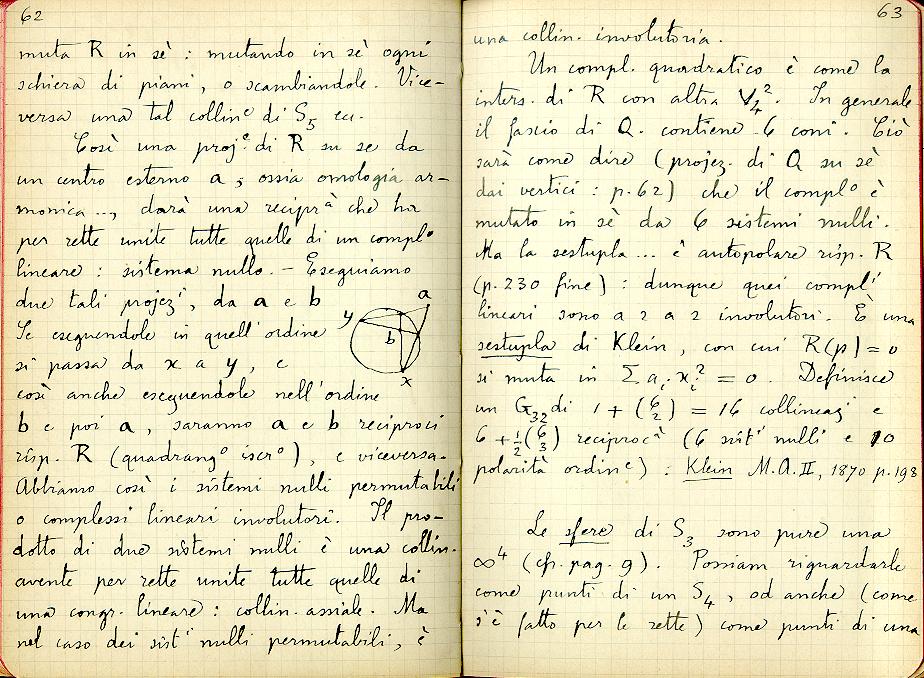 62
muta R in sè : mutando in sè ogni
schiera di piani, o scambiandole. Vice-
versa una tal collinᵉ di S₅ ecc.
Così una projᵉ di R su se da
un centro esterno a, ossia omologia ar-
monica ..., darà una reciprᵃ che ha
per rette unite tutte quelle di un complᵒ
lineare : sistema nullo. – Eseguiamo
due tali projezⁱ, da a e b
Se eseguendole in quell'ordine
si passa da x a y, e
così anche eseguendole nell'ordine
b e poi a, saranno a e b reciproci
risp. R (quadrangᵒ iscrᵒ), e viceversa.
Abbiamo così i sistemi nulli permutabili
o complessi lineari involutori. Il pro-
dotto di due sistemi nulli è una collin.
avente per rette unite tutte quelle di
una congr. lineare : collin. assiale. Ma
nel caso dei sistⁱ nulli permutabili, è
a
y
b
x
63
una collin. involutoria.
Un compl. quadratico è come la
inters. di R con altra V₄². In generale
il fascio di Q. contiene 6 coni. Ciò
sarà come dire (projez. di Q su sè
dai vertici : p. 62) che il complᵒ è
mutato in sè da 6 sistemi nulli.
Ma la sestupla ... è autopolare risp. R
(p. 230 fine) : dunque quei complⁱ
lineari sono a 2 a 2 involutori. È una
sestupla di Klein, con cui R(p) = 0
si muta in Σ aᵢ xᵢ² = 0. Definisce
un G₃₂ di 1 + (6 2) = 16 collineazⁱ e
6 + ½(6 3) reciprocᵃ (6 sistⁱ nulli e 10
polarità ordinᵉ) : Klein M.A. II, 1870 p. 198
Le sfere di S₃ sono pure una
∞⁴ (cfr. pag. 9). Possiam riguardarle
come punti di un S₄, od anche (come
s'è fatto per le rette) come punti di una